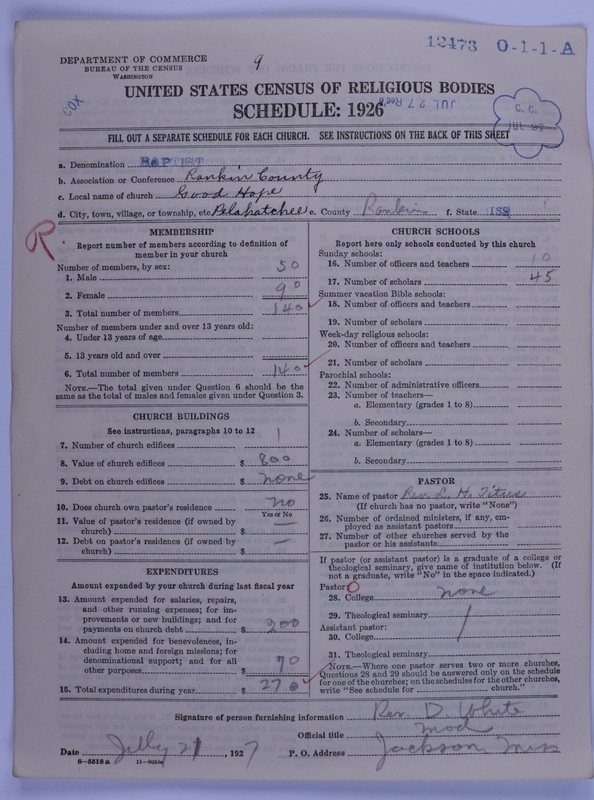 12473 O-1-1-A
DEPARTMENT OF COMMERCE
BUREAU OF THE CENSUS
WASHINGTON
9
COX
UNITED STATES CENSUS OF RELIGIOUS BODIES
SCHEDULE: 1926
JUL 27 Rec'd
C. C.
JUL 27
FILL OUT A SEPARATE SCHEDULE FOR EACH CHURCH. SEE INSTRUCTIONS ON THE BACK OF THIS SHEET
a. Denomination BAPTIST
b. Association or Conference Rankin County
c. Local name of church Good Hope
d. City, town, village, or township, etc Pelahatchee e. County Rankin f. State ISS
R.
MEMBERSHIP
Report number of members according to definition of
member in your church
Number of members, by sex:
1. Male 50
2. Female 90
3. Total number of members 140
Number of members under and over 13 years old:
4. Under 13 years of age
5. 13 years old and over
6. Total number of members 140
NOTE.—The total given under Question 6 should be the
same as the total of males and females given under Question 3.
CHURCH BUILDINGS
See instructions, paragraphs 10 to 12
7. Number of church edifices 1
8. Value of church edifices $ 800
9. Debt on church edifices $ none
10. Does church own pastor's residence no
Yes or No
11. Value of pastor's residence (if owned by
church) $ —
12. Debt on pastor's residence (if owned by
church) $ —
EXPENDITURES
Amount expended by your church during last fiscal year
13. Amount expended for salaries, repairs,
and other running expenses; for im-
provements or new buildings; and for
payments on church debt $ 200
14. Amount expended for benevolences, in-
cluding home and foreign missions; for
denominational support; and for all
other purposes $ 70
15. Total expenditures during year $ 270
CHURCH SCHOOLS
Report here only schools conducted by this church
Sunday schools:
16. Number of officers and teachers 10
17. Number of scholars 45
Summer vacation Bible schools:
18. Number of officers and teachers
19. Number of scholars
Week-day religious schools:
20. Number of officers and teachers
21. Number of scholars
Parochial schools:
22. Number of administrative officers
23. Number of teachers—
a. Elementary (grades 1 to 8)
b. Secondary
24. Number of scholars—
a. Elementary (grades 1 to 8)
b. Secondary
PASTOR
25. Name of pastor Rev. L. H. Titus
(If church has no pastor, write "None")
26. Number of ordained ministers, if any, em-
ployed as assistant pastors
27. Number of other churches served by the
pastor or his assistants
If pastor (or assistant pastor) is a graduate of a college or
theological seminary, give name of institution below. (If
not a graduate, write "No" in the space indicated.)
Pastor: 0
28. College none
29. Theological seminary
Assistant pastor:
30. College
31. Theological seminary
NOTE.—Where one pastor serves two or more churches,
Questions 28 and 29 should be answered only on the schedule
for one of the churches; on the schedules for the other churches,
write "See schedule for church."
Signature of person furnishing information Rev. D. White
Official title Mod
Date July 21, 1927 P. O. Address Jackson Miss
8—5518a